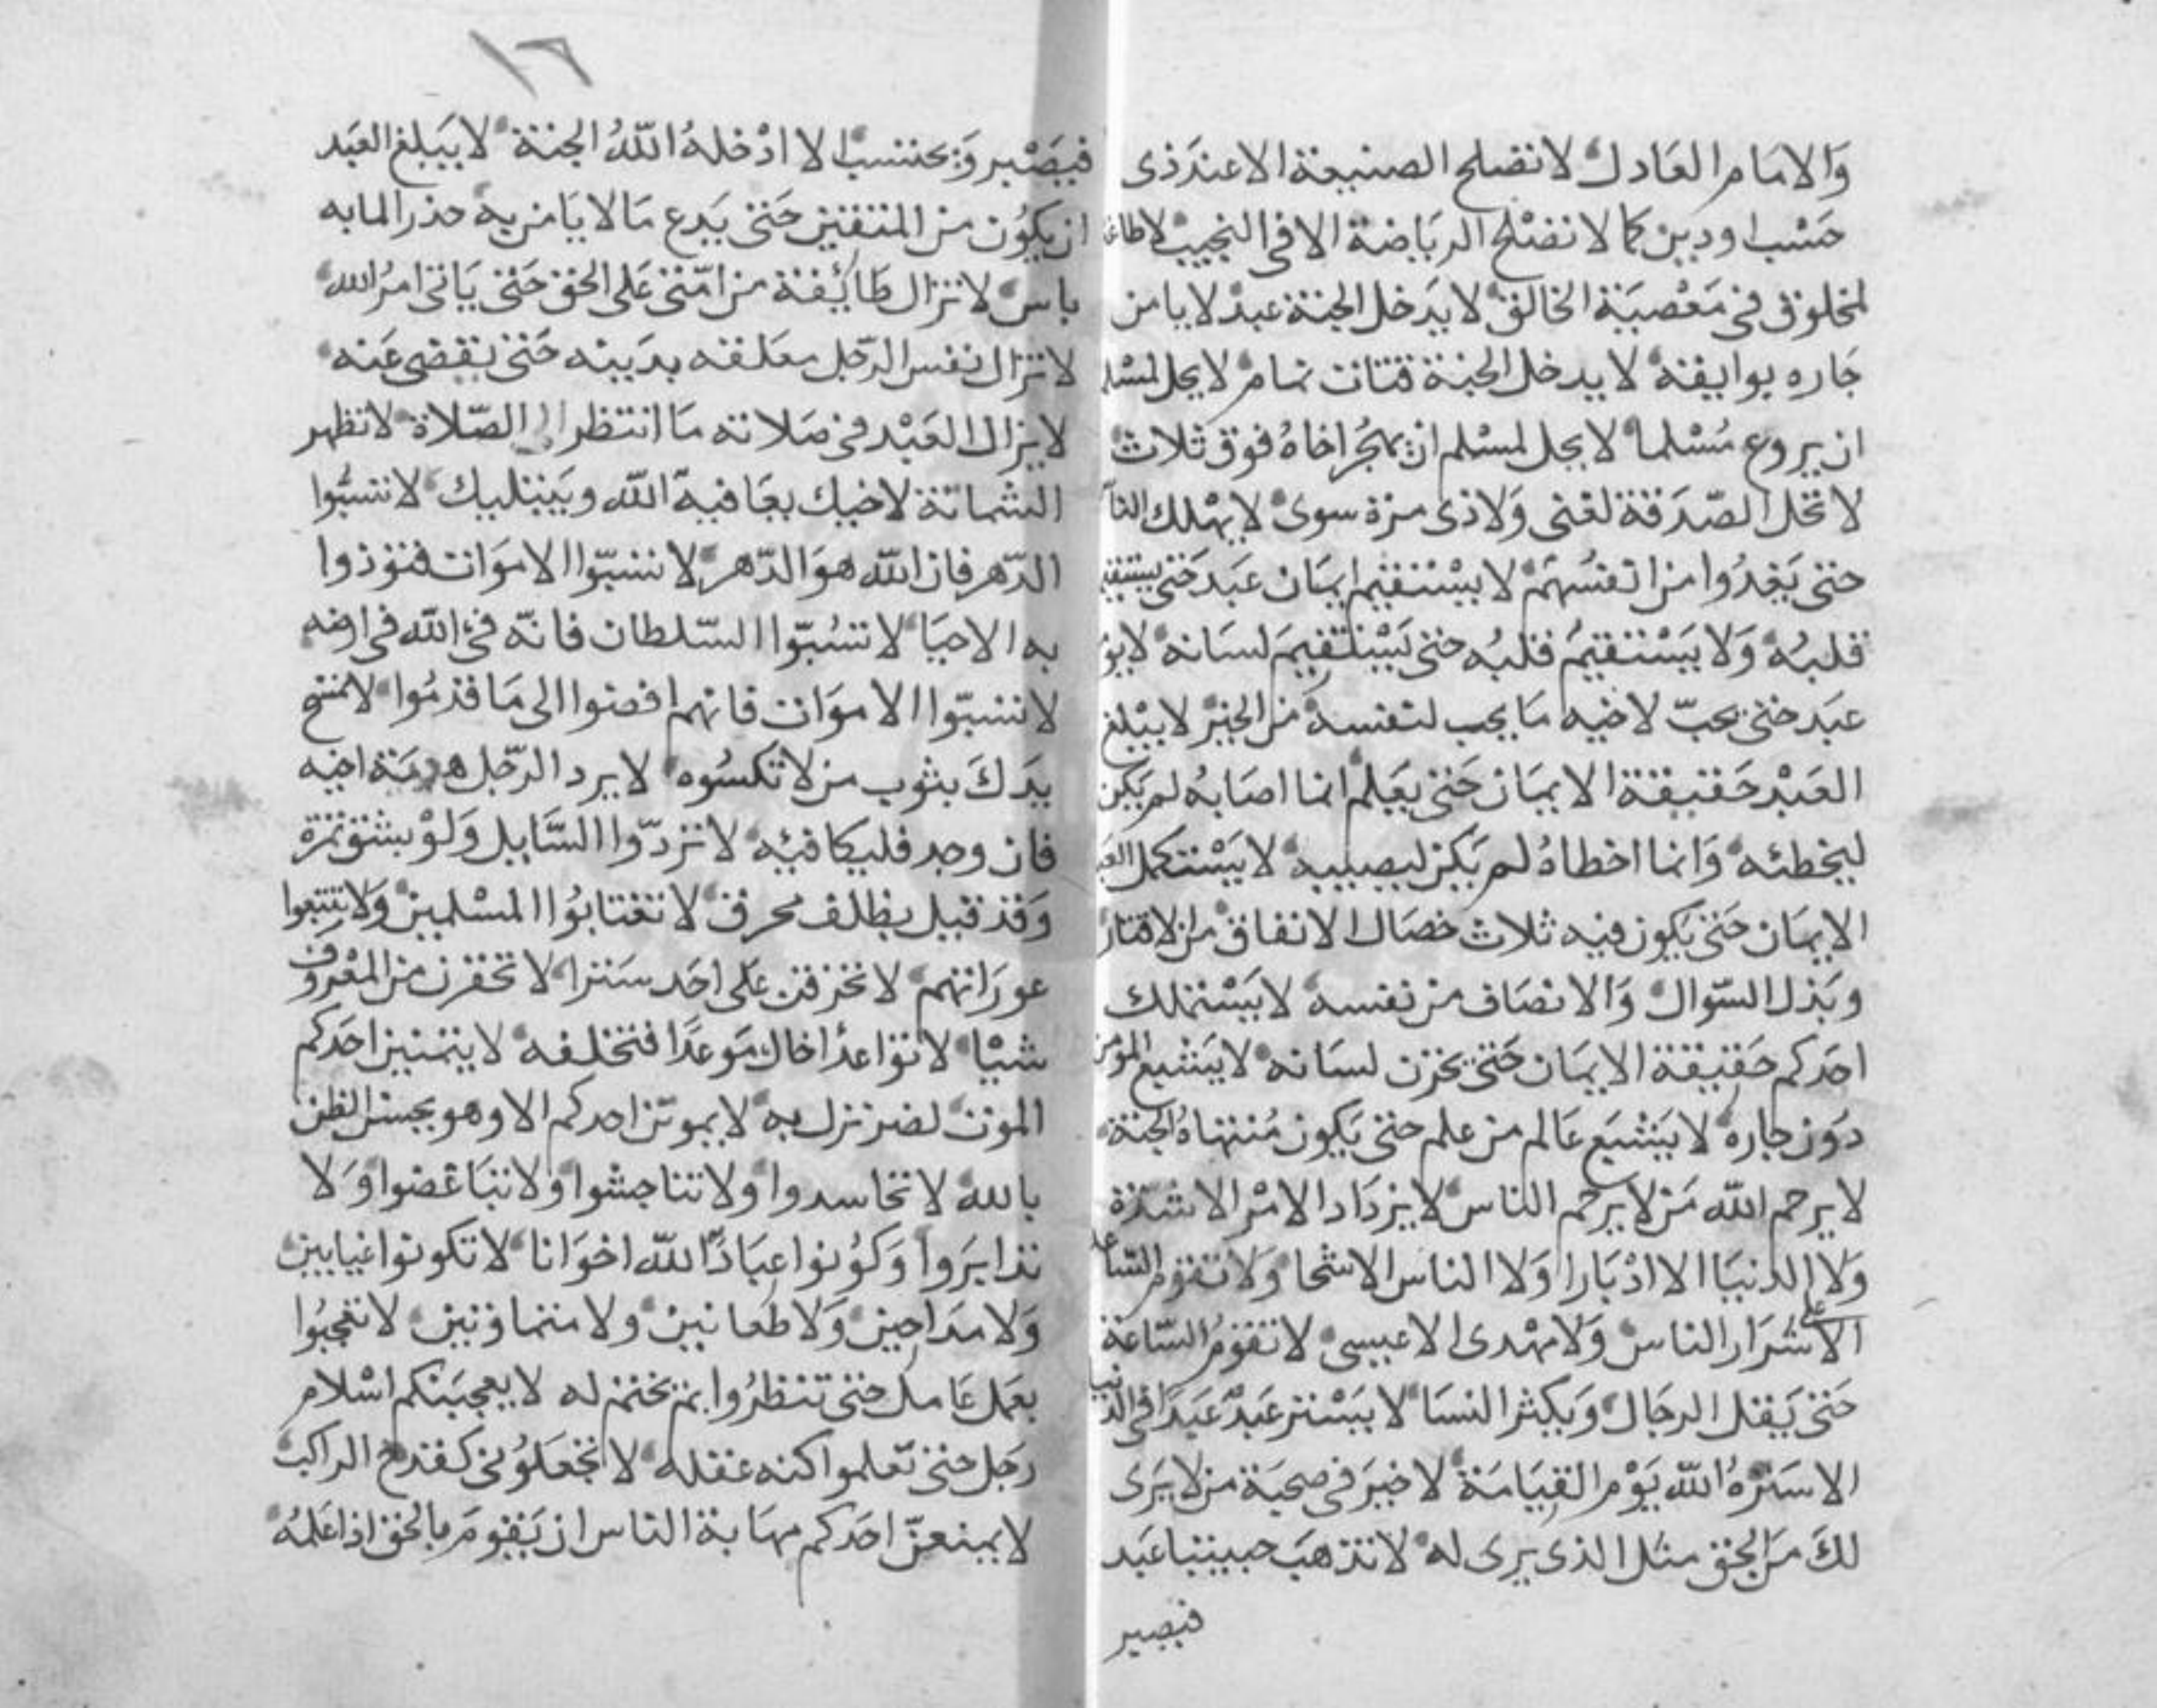 والامام العادل لا تصلح الصنيعة الا عند ذى
حسب او دين كما لا تصلح الرياضة الا فى النجيب لا طاعة
لمخلوق فى معصية الخالق لا يدخل الجنة عبد لا يامن
جاره بوايقه لا يدخل الجنة قتات نمام لا يحل لمسلم
ان يروع مسلما لا يحل لمسلم ان يهجر اخاه فوق ثلاث
لا تحل الصدقة لغنى ولا ذى مرة سوى لا يهلك الناس
حتى يغدروا من انفسهم لا يستقيم ايمان عبد حتى يستقيم
قلبه ولا يستقيم قلبه حتى يستقيم لسانه لا يؤمن
عبد حتى يحب لاخيه ما يحب لنفسه من الخير لا يبلغ
العبد حقيقة الايمان حتى يعلم انما اصابه لم يكن
ليخطئه وانما اخطاه لم يكن ليصيبه لا يستكمل العبد
الايمان حتى يكون فيه ثلاث خصال الانفاق من الاقتار
وبذل السوال والانصاف من نفسه لا يستملك
احدكم حقيقة الايمان حتى يخزن لسانه لا يشبع المؤمن
دون جاره لا يشبع عالم من علم حتى يكون منتهاه الجنة
لا يرحم الله من لا يرحم الناس لا يزداد الامر الا شدة
ولا الدنيا الا ادبارا ولا الناس الا شحا ولا تقوم الساعة
الا على شرار الناس ولا مهدى الا عيسى لا تقوم الساعة
حتى يقل الرجال ويكثر النسا لا يستر عبد عبدا فى الدنيا
الا ستره الله يوم القيامة لا خير فى صحبة من لا يرى
لك من الحق مثل الذى يرى له لا تذهب حبيبتا عبد
فيصبر
١٦
فيصبر ويحتسب الا ادخله الله الجنة لا يبلغ العبد
ان يكون من المتقين حتى يدع ما لا يامن به حذر الما به
باس لا تزال طائفة من امتى على الحق حتى ياتى امر الله
لا تزال نفس الرجل معلقه بدينه حتى يقضى عنه
لا يزال العبد فى صلاته ما انتظر الصلاة لا تظهر
الشماتة لاخيك يعافيه الله ويبتليك لا تسبوا
الدهر فان الله هو الدهر لا تسبوا الاموات فتوذوا
به الاحيا لا تسبوا السلطان فانه فئ الله فى ارضه
لا تسبوا الاموات فانهم افضوا الى ما قدموا لا تمسح
يدك بثوب من لا تكسوه لا يرد الرجل هدية اخيه
فان وجد فليكافئه لا تردوا السايل ولو بشق تمرة
وقد قيل بظلف محرق لا تغتابوا المسلمين ولا تتبعوا
عوراتهم لا تخرقن على احد سترا لا تحقرن من المعروف
شيا لا تواعد اخاك موعدا فتخلفه لا يتمنين احدكم
الموت لضر نزل به لا يموتن احدكم الا وهو يحسن الظن
بالله لا تحاسدوا ولا تناجشوا ولا تباغضوا ولا
تدابروا وكونوا عبادا لله اخوانا لا تكونوا عيابين
ولا مداحين ولا طعانين ولا متماوتين لا تعجبوا
بعمل عامل حتى تنظروا بم يختم له لا يعجبنكم اسلام
رجل حتى تعلموا كنه عقله لا تجعلونى كقدح الراكب
لا يمنعن احدكم مهابة الناس ان يقوم بالحق اذا علمه